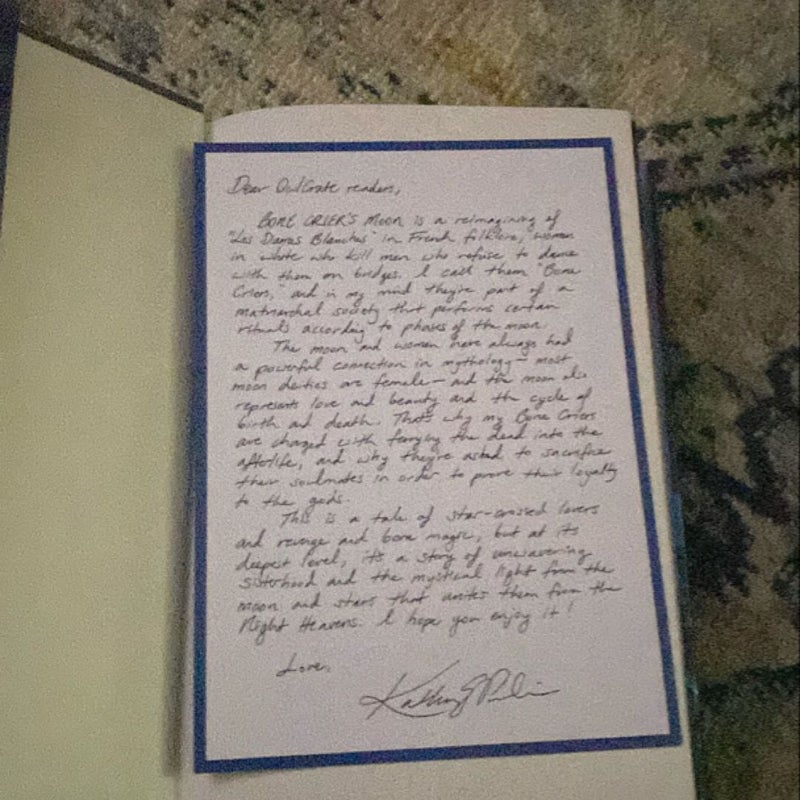 Dear OwlCrate readers,
BONE CRIER'S MOON is a reimagining of
"Les Dames Blanches" in French folklore, women
in white who kill men who refuse to dance
with them on bridges. I call them "Bone
Criers," and in my mind they're part of a
matriarchal society that performs certain
rituals according to phases of the moon.
The moon and women have always had
a powerful connection in mythology—most
moon deities are female—and the moon also
represents love and beauty and the cycle of
birth and death. That's why my Bone Criers
are charged with ferrying the dead into the
afterlife, and why they're asked to sacrifice
their soulmates in order to prove their loyalty
to the gods.
This is a tale of star-crossed lovers
and revenge and bone magic, but at its
deepest level, it's a story of unwavering
sisterhood and the mystical light from the
moon and stars that unites them from the
Night Heavens. I hope you enjoy it!
Love,
Kathryn Purdie